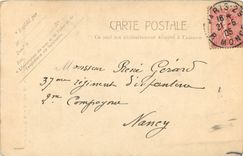 CARTE POSTALE
Ce côté est exclusivement réservé à l'adresse
PARIS
21 -
Monsieur René Gérard
37ème régiment d'infanterie
2me Compagnie
Nancy